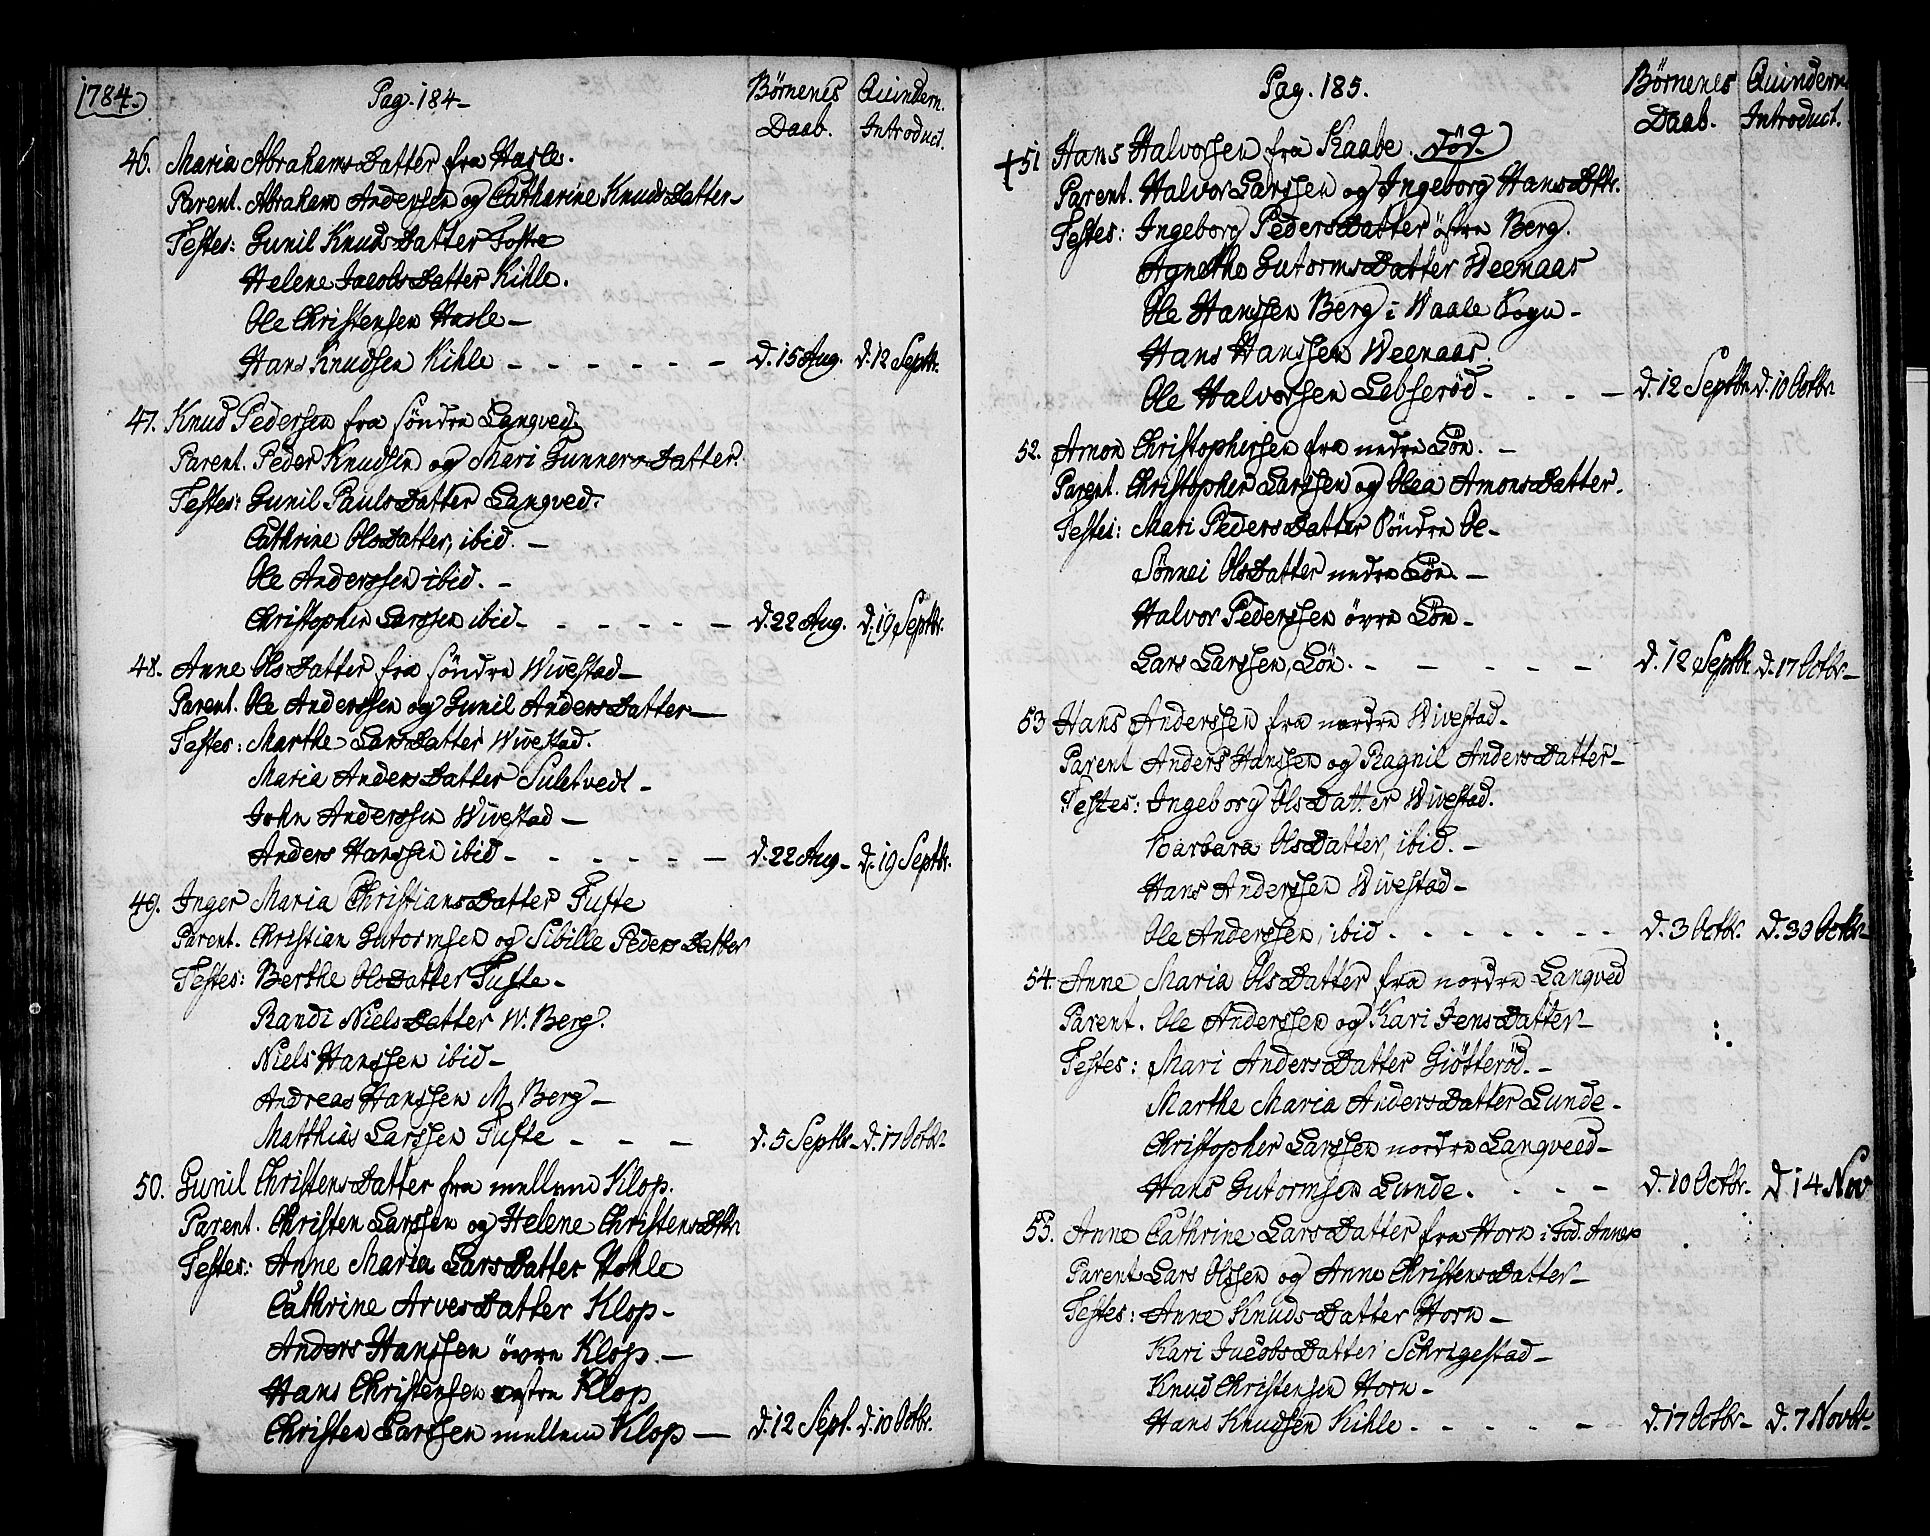 1784.
Pag. 184.
Börnenes Daab.
Qvindern. Introduct.
46. Maria AbrahamsDatter fra Hasle.
Parent. Abraham Anderssen og Catharine KnudsDatter
Testes: Gunil KnudsDatter Fostre
Helene JacobsDatter Kihle.
Ole Christensen Hasle
Hans Knudsen Kihle d. 15 Aug. d. 12 Septbr.
47. Knud Pederssen fra söndre Langved.
Parent. Peder Knudsen og Mari GunnersDatter.
Testes: Gunil PaulsDatter Langved.
Cathrine OlsDatter, ibid.
Ole Anderssen ibid.
Christopher Larssen ibid d. 22 Aug. d. 19 Septbr.
48. Anne OlsDatter fra söndre Wivestad
Parent. Ole Anderssen og Gunil AndersDatter
Testes: Marthe LarsDatter Wivestad.
Maria AndersDatter Suletvedt
John Anderssen Wivestad
Anders Hanssen ibid d. 22 Aug d. 19 Septbr.
49. Inger Maria ChristiansDatter Tufte
Parent. Christian Gutormsen og Sibille PedersDatter
Testes: Berthe OlsDatter Tufte
Randi NielsDatter W. Berg.
Niels Hanssen ibid
Andreas Hanssen M. Berg
Matthias Larssen Tufte d. 5 Septbr d. 17 Octbr
50. Gunil ChristensDatter fra mellem Klop.
Parent. Christen Larssen og Helene ChristensDtr.
Testes: Anne Maria LarsDatter Hohle
Cathrine ArvesDatter Klop
Anders Hanssen övre Klop.
Hans Christensen vestre Klop
Christen Larssen mellem Klop d. 12 Sept. d. 10 Octbr.
Pag. 185.
Börnenes Daab.
Qvindern. Introduct.
+51 Hans Halvorssen fra Kaabe. död.
Parent. Halvor Larssen og Ingeborg HansDttr.
Testes: Ingeborg PedersDatter östre Berg.
Agnethe GutormsDatter Weenaas
Ole Hanssen Berg i Waale Sogn
Hans Hanssen Weenaas.
Ole Halvorsen Lebseröd d. 12 Septbr d. 10 Octbr.
52. Amon Christophersen fra nedre Lön.
Parent. Christopher Larssen og Olea AmonsDatter.
Testes: Mari PedersDatter Söndre Oe
Sönnei OlsDatter nedre Lön.
Halvor Pederssen övre Lön
Lars Larssen, Lön. d. 12 Septbr. d. 17 Octbr
53 Hans Anderssen fra nordre Wivestad.
Parent Anders Hanssen og Ragnil AndersDatter
Testes: Ingeborg OlsDatter Wivestad.
Barbara OlsDatter, ibid.
Hans Anderssen Wivestad
Ole Anderssen, ibid d. 3 Octbr. d. 30 Octbr
54. Anne Maria OlsDatter fra nordre Langved
Parent. Ole Anderssen og Kari JensDatter
Testes: Mari AndersDatter Giötteröd.
Marthe Maria AndersDatter Lunde
Christopher Larssen nordre Langveed
Hans Gutormsen Lunde. d. 10 Octbr. d. 14 Nov
55. Anne Cathrine LarsDatter fra Horn i Fod. Annex
Parent Lars Olssen og Anne ChristensDatter
Testes: Anne KnudsDatter Horn
Kari JacobsDatter Schrigestad
Knud Christensen Horn
Hans Knudsen Kihle. d. 17 Octbr d. 7 Novbr